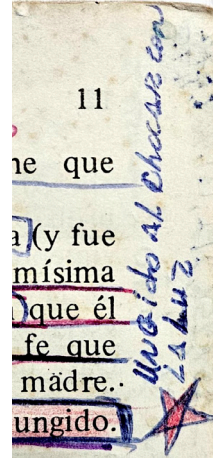 11
ne que
a (y fue
mísima
) que él
fe que
madre.
ungido.
ungido al chocar con
la luz